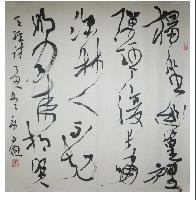 獨坐幽篁裡
彈琴復長嘯
深林人不知
明月來相照
王維詩